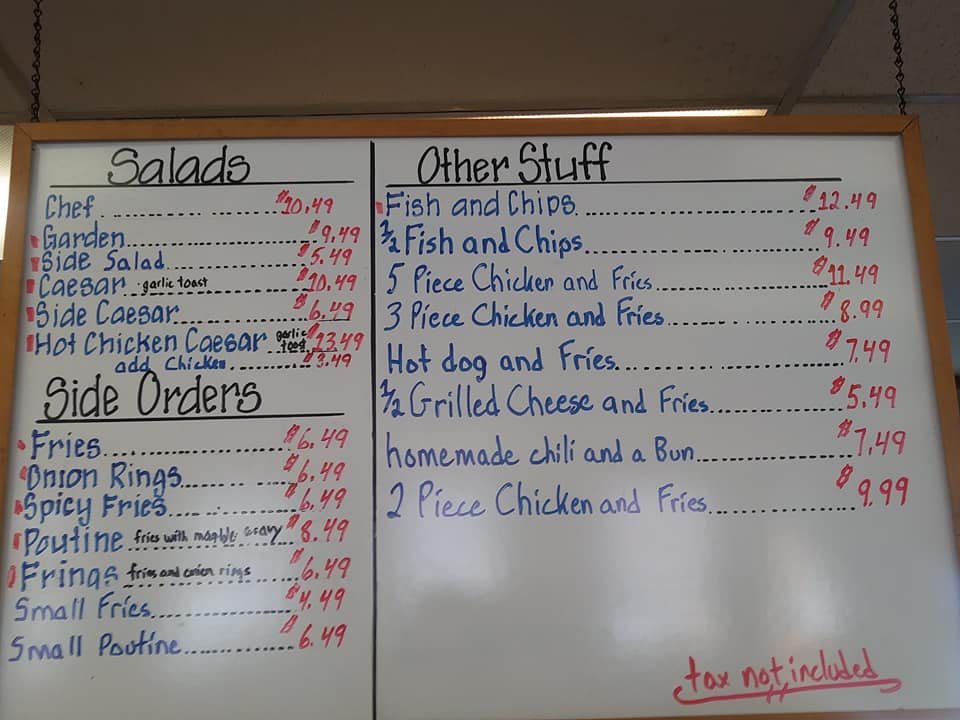 Salads
Chef .................. $10.49
Garden.................. $9.49
Side Salad.................. $5.49
Caesar garlic toast .......... $10.49
Side Caesar.................. $6.49
Hot Chicken Caesar garlic toast $13.49
add Chicken ............ $3.49
Side Orders
Fries.................. $6.49
Onion Rings.................. $6.49
Spicy Fries.................. $6.49
Poutine fries with gravy $8.49
Frings fries and onion rings ...... $6.49
Small Fries.................. $4.49
Small Poutine............... $6.49
Other Stuff
Fish and Chips .............................. $12.49
1/2 Fish and Chips.............................. $9.49
5 Piece Chicken and Fries..................... $11.49
3 Piece Chicken and Fries..................... $8.99
Hot dog and Fries.............................. $7.49
1/2 Grilled Cheese and Fries.................. $5.49
homemade chili and a Bun.................. $7.49
2 Piece Chicken and Fries.................. $9.99
tax not included